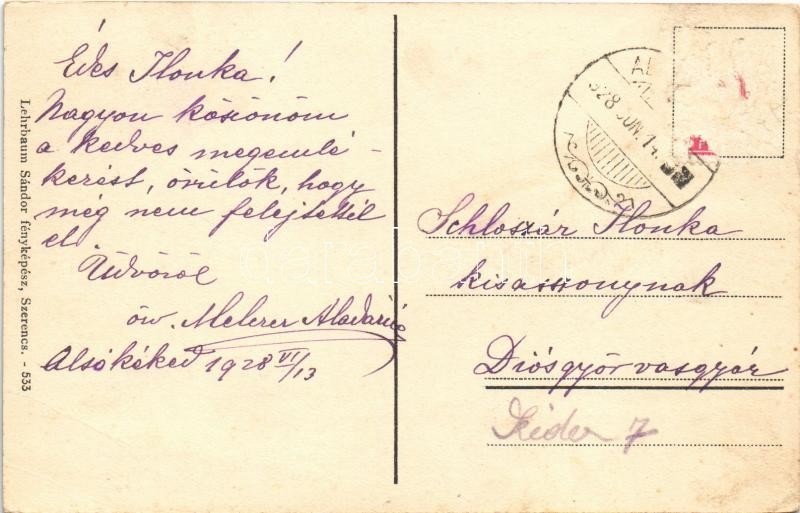 Édes Ilonka!
Nagyon köszönöm
a kedves megemlé-
kezést, örülök, hogy
még nem felejtettél
el.
Üdvözöl
öw. Melczer Aladárné
Alsókéked 1928 VI/13
Lehrbaum Sándor fényképész, Szerencs. - 533
928 JUN. 14.
Schloszár Ilonka
kisasszonynak
Diósgyőr vasgyár
7